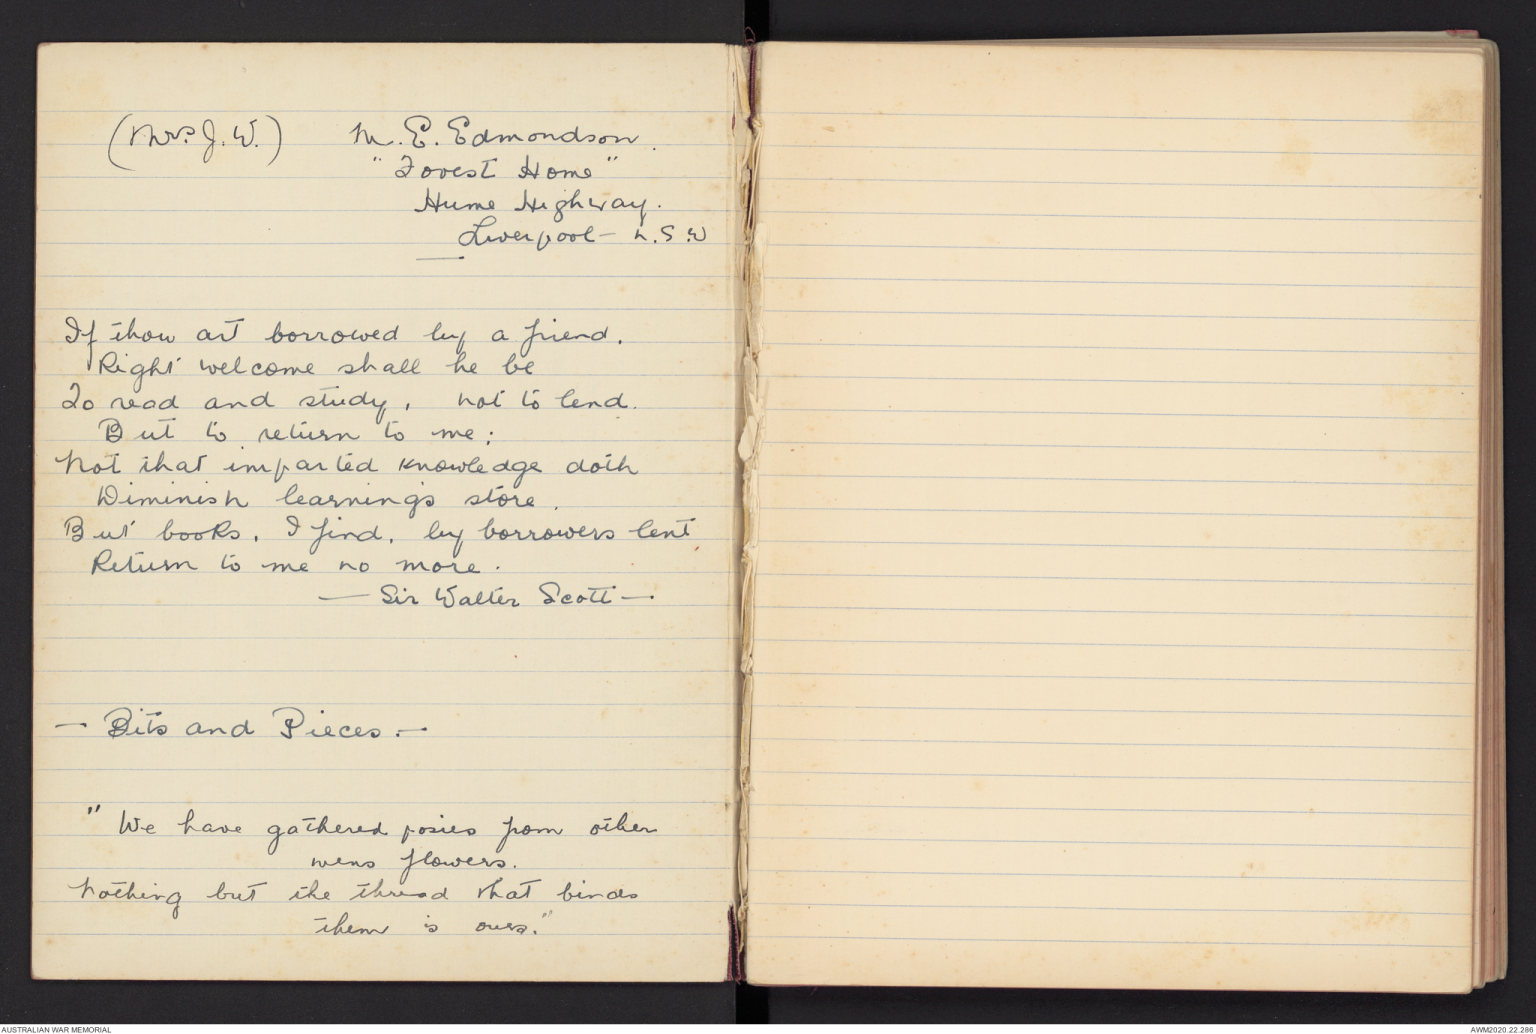 (Mrs. J. W.) M. E. Edmondson.
"Forest Home"
Hume Highway.
Liverpool - N.S.W
If thou art borrowed by a friend.
Right welcome shall he be
To read and study, not to lend.
But to return to me;
Not that imparted knowledge doth
Diminish learning's store.
But books, I find, by borrowers lent
Return to me no more.
— Sir Walter Scott —
— Bits and Pieces. —
"We have gathered posies from other
mens flowers.
Nothing but the thread that binds
them is ours."
AUSTRALIAN WAR MEMORIAL
AWM2020.22.286